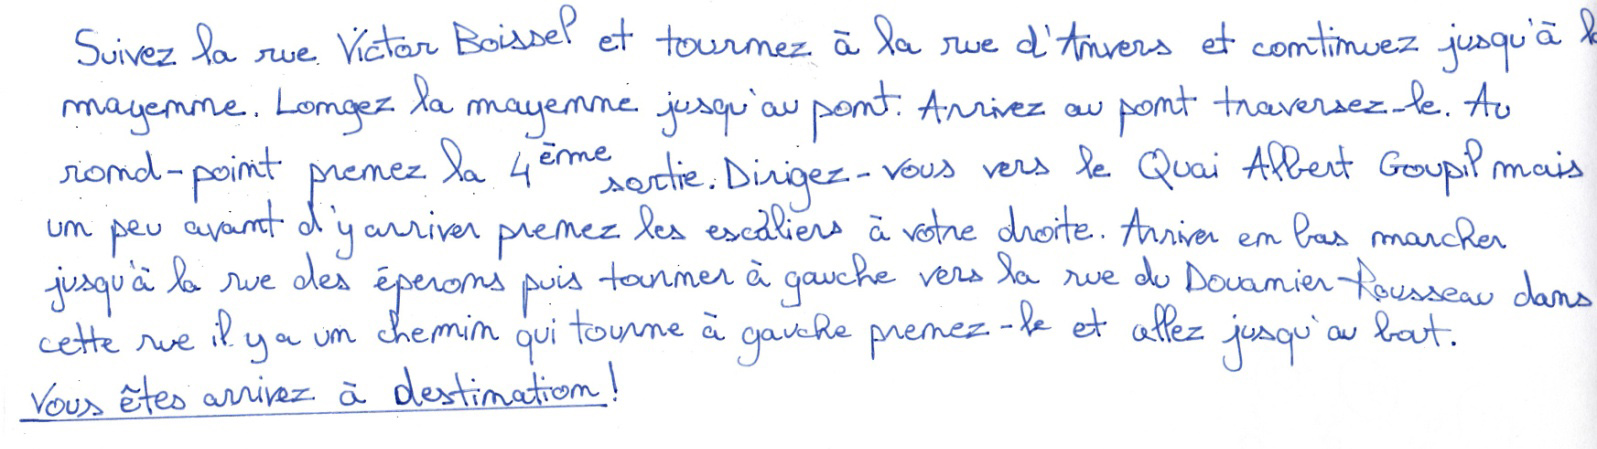 Suivez la rue Victor Boissel et tournez à la rue d'Anvers et continuez jusqu'à l
mayenne. Longez la mayenne jusqu'au pont. Arrivez au pont traversez-le. Au
rond-point prenez la 4ème sortie. Dirigez-vous vers le Quai Albert Goupil mais
un peu avant d'y arriver prenez les escaliers à votre droite. Arriver en bas marcher
jusqu'à la rue des éperons puis tourner à gauche vers la rue du Douanier-Rousseau dans
cette rue il y a un chemin qui tourne à gauche prenez-le et allez jusqu'au bout.
Vous êtes arrivez à destination!